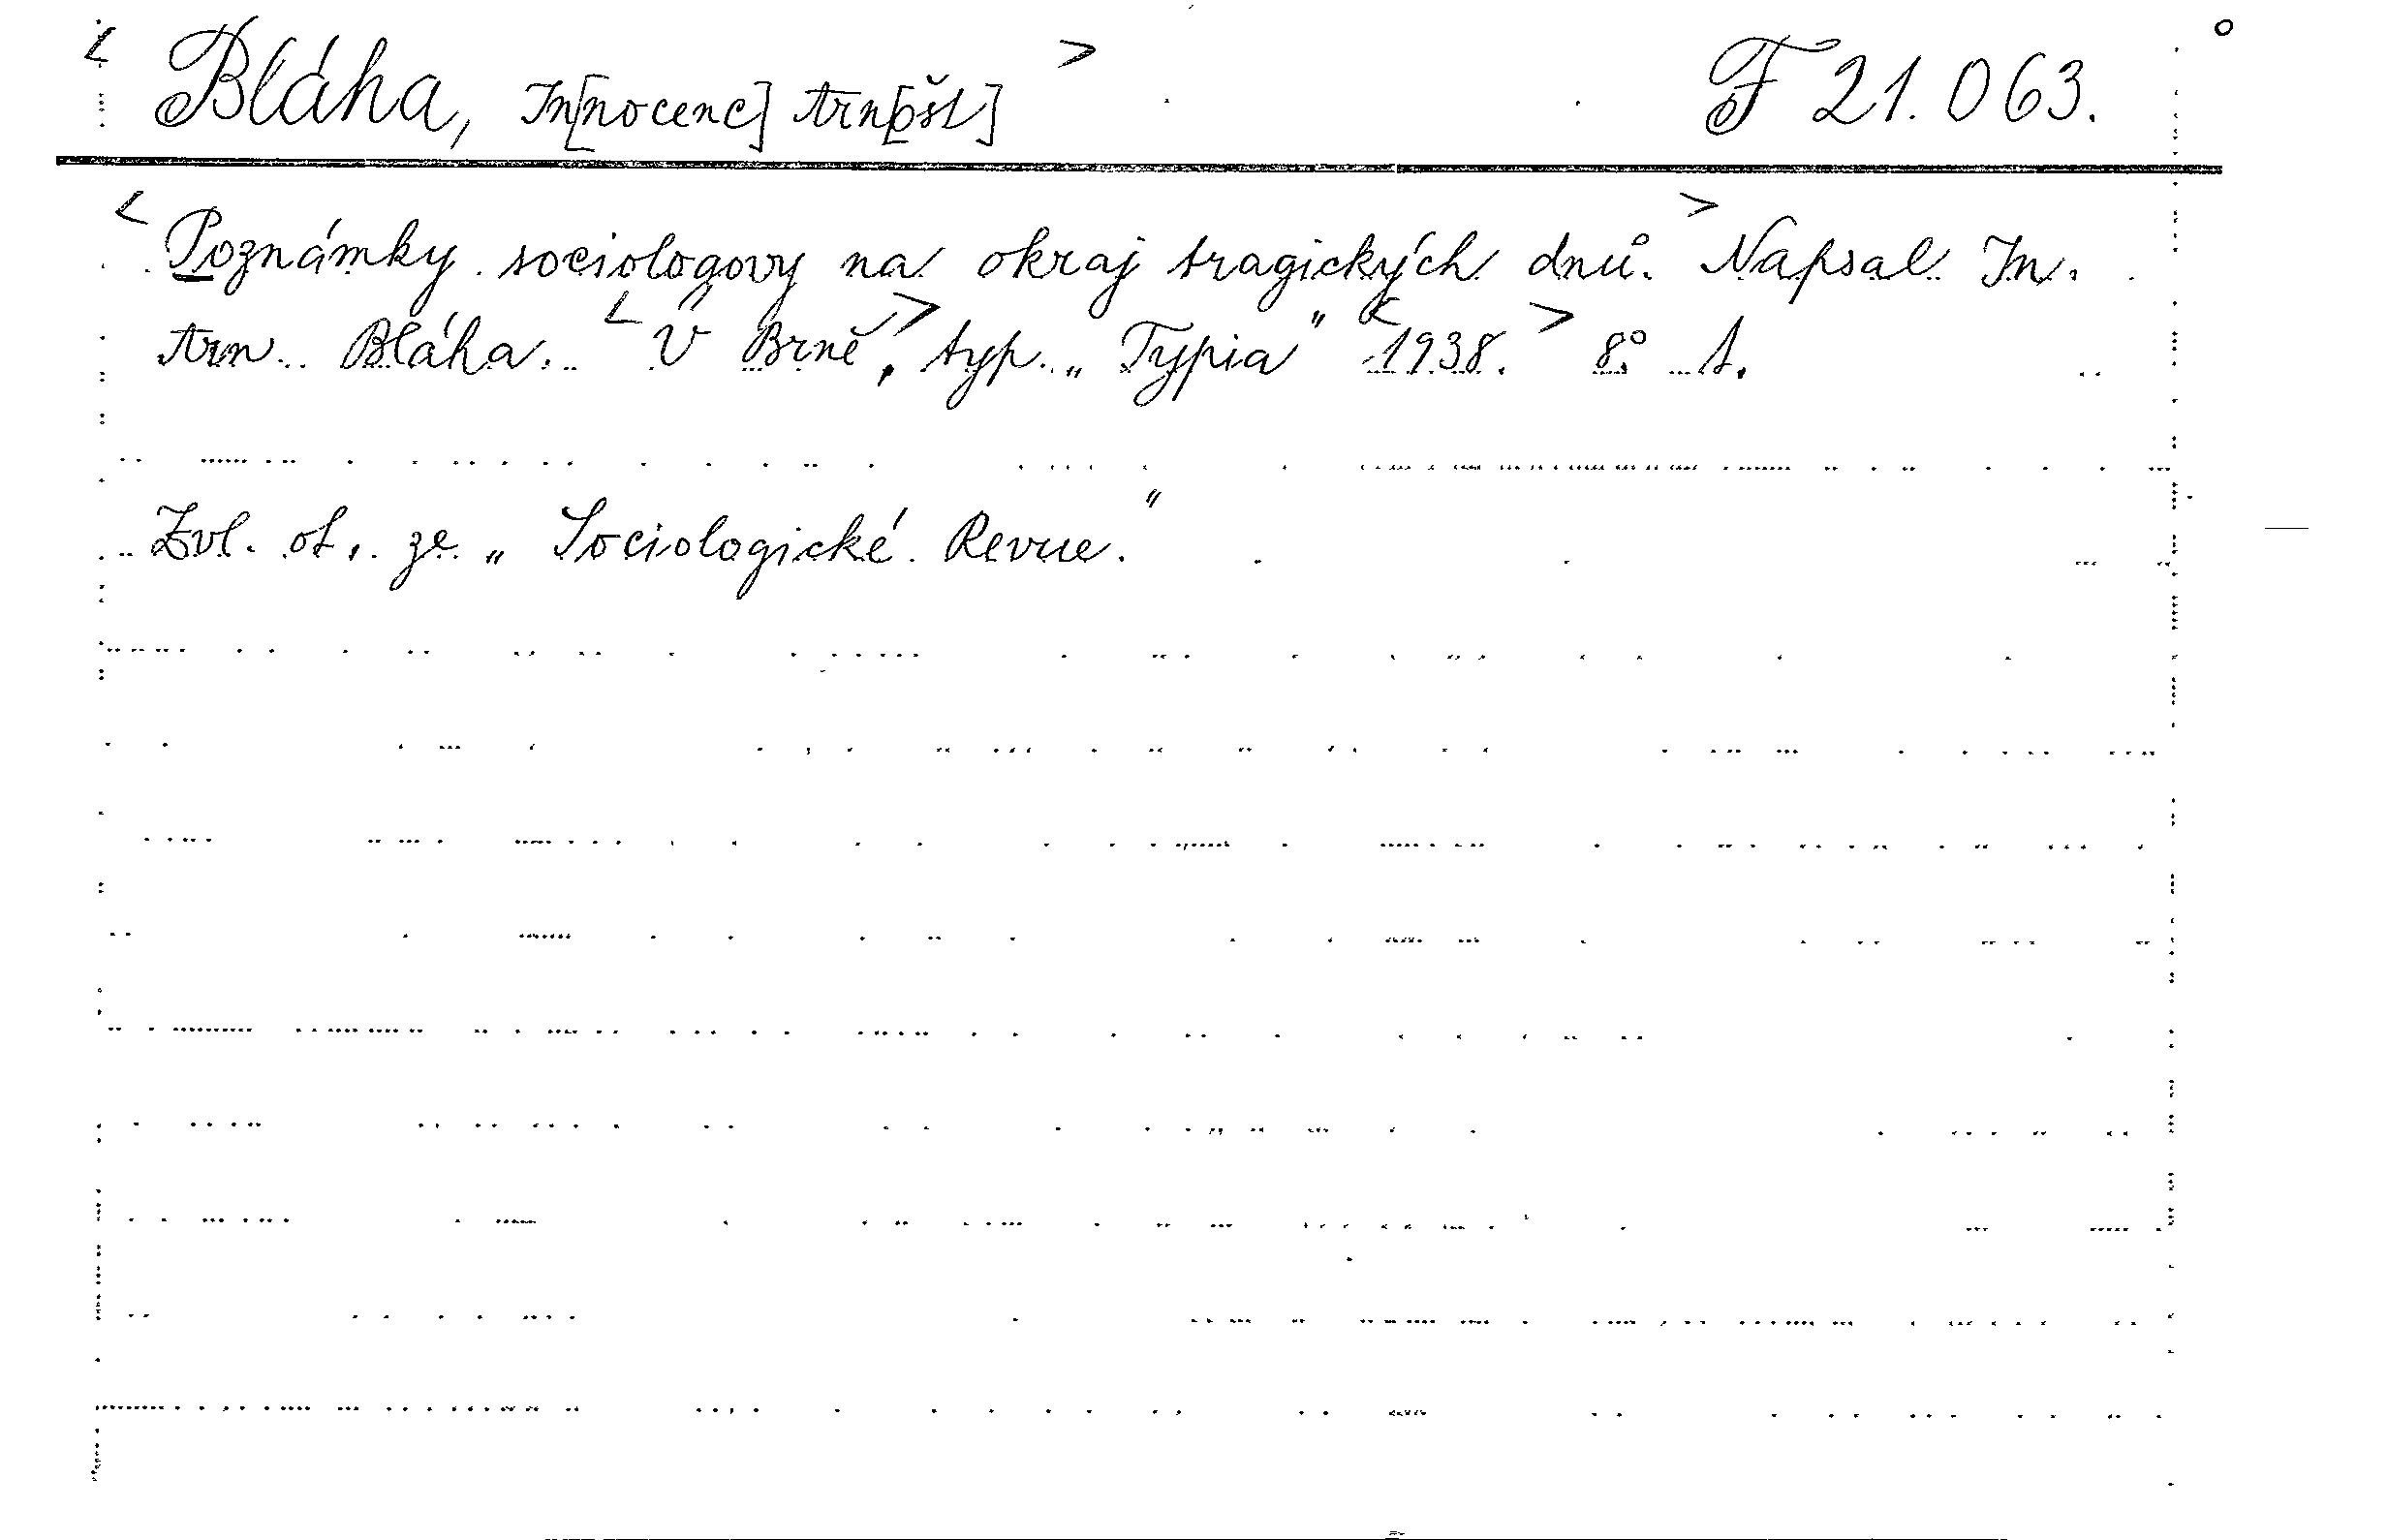 < Bláha, In[nocenc] Arn[ošt] > F 21.063.
< Poznámky sociologovy na okraj tragických dnů. > Napsal In.
Arn. Bláha. < V Brně, > typ. „Typia" < 1938. > 8° 1.
Zvl. ot. ze „Sociologické Revue."